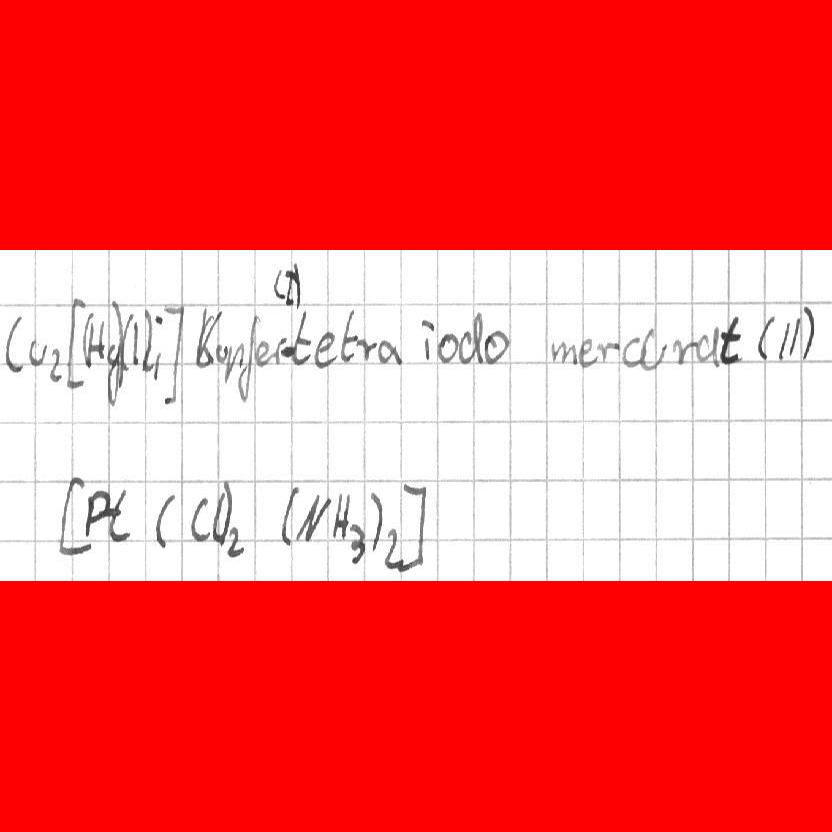 (I)
Cu₂[Hg(I)₄] Kupfer-tetra iodo mercurat (II)
[Pt (Cl)₂ (NH₃)₂]